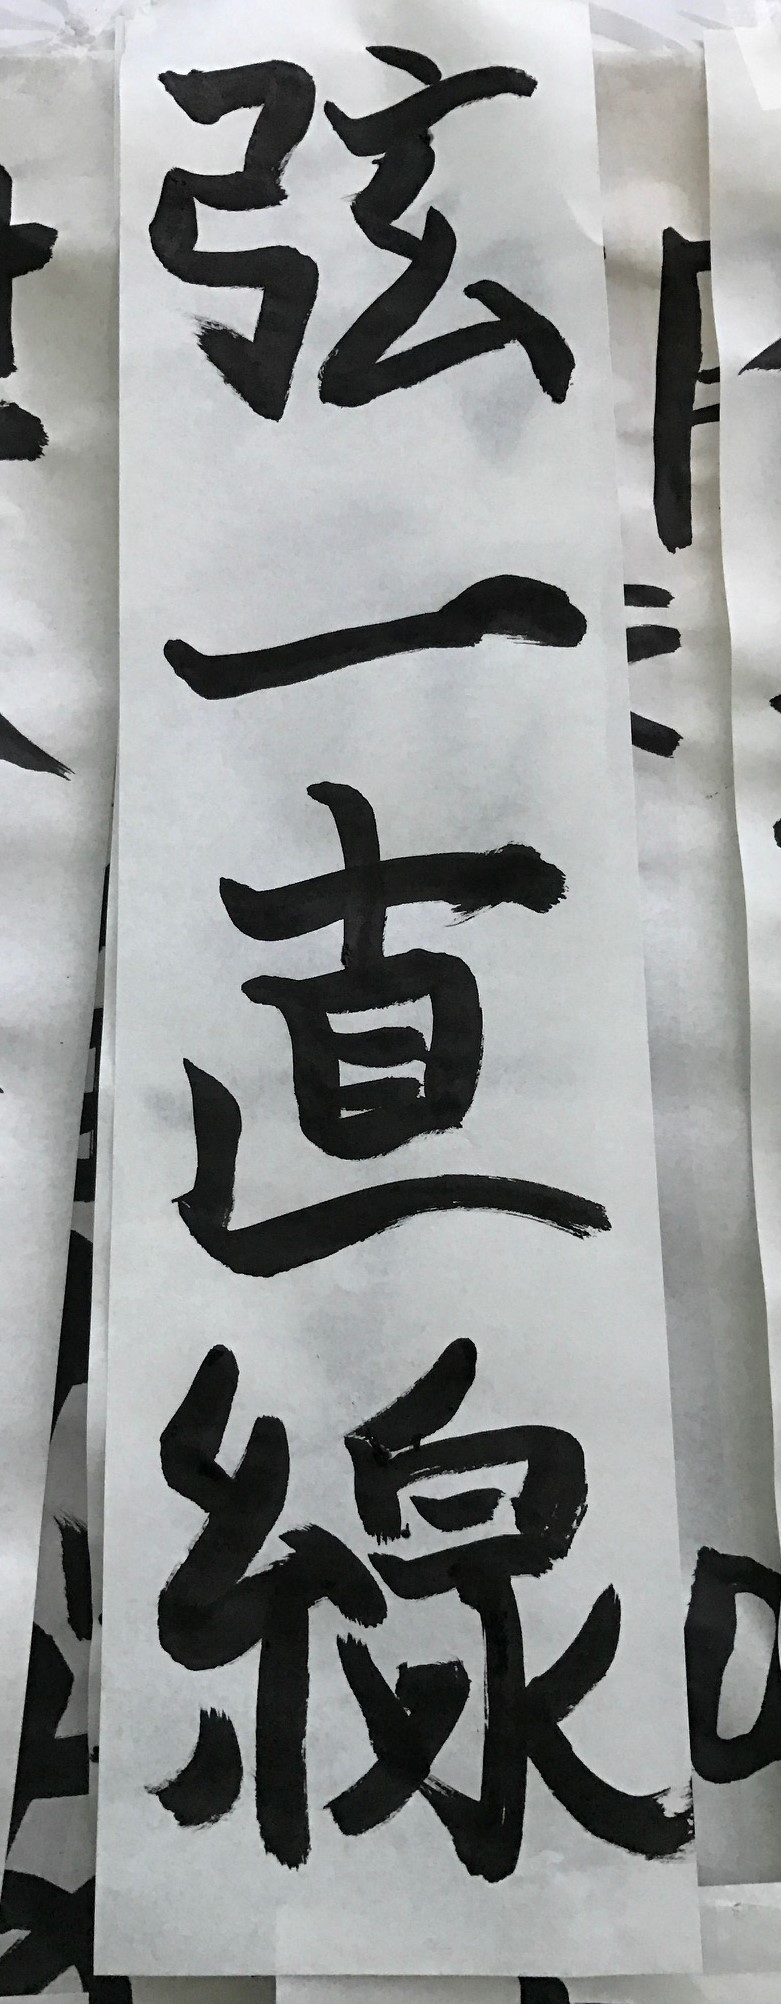 弦一直線